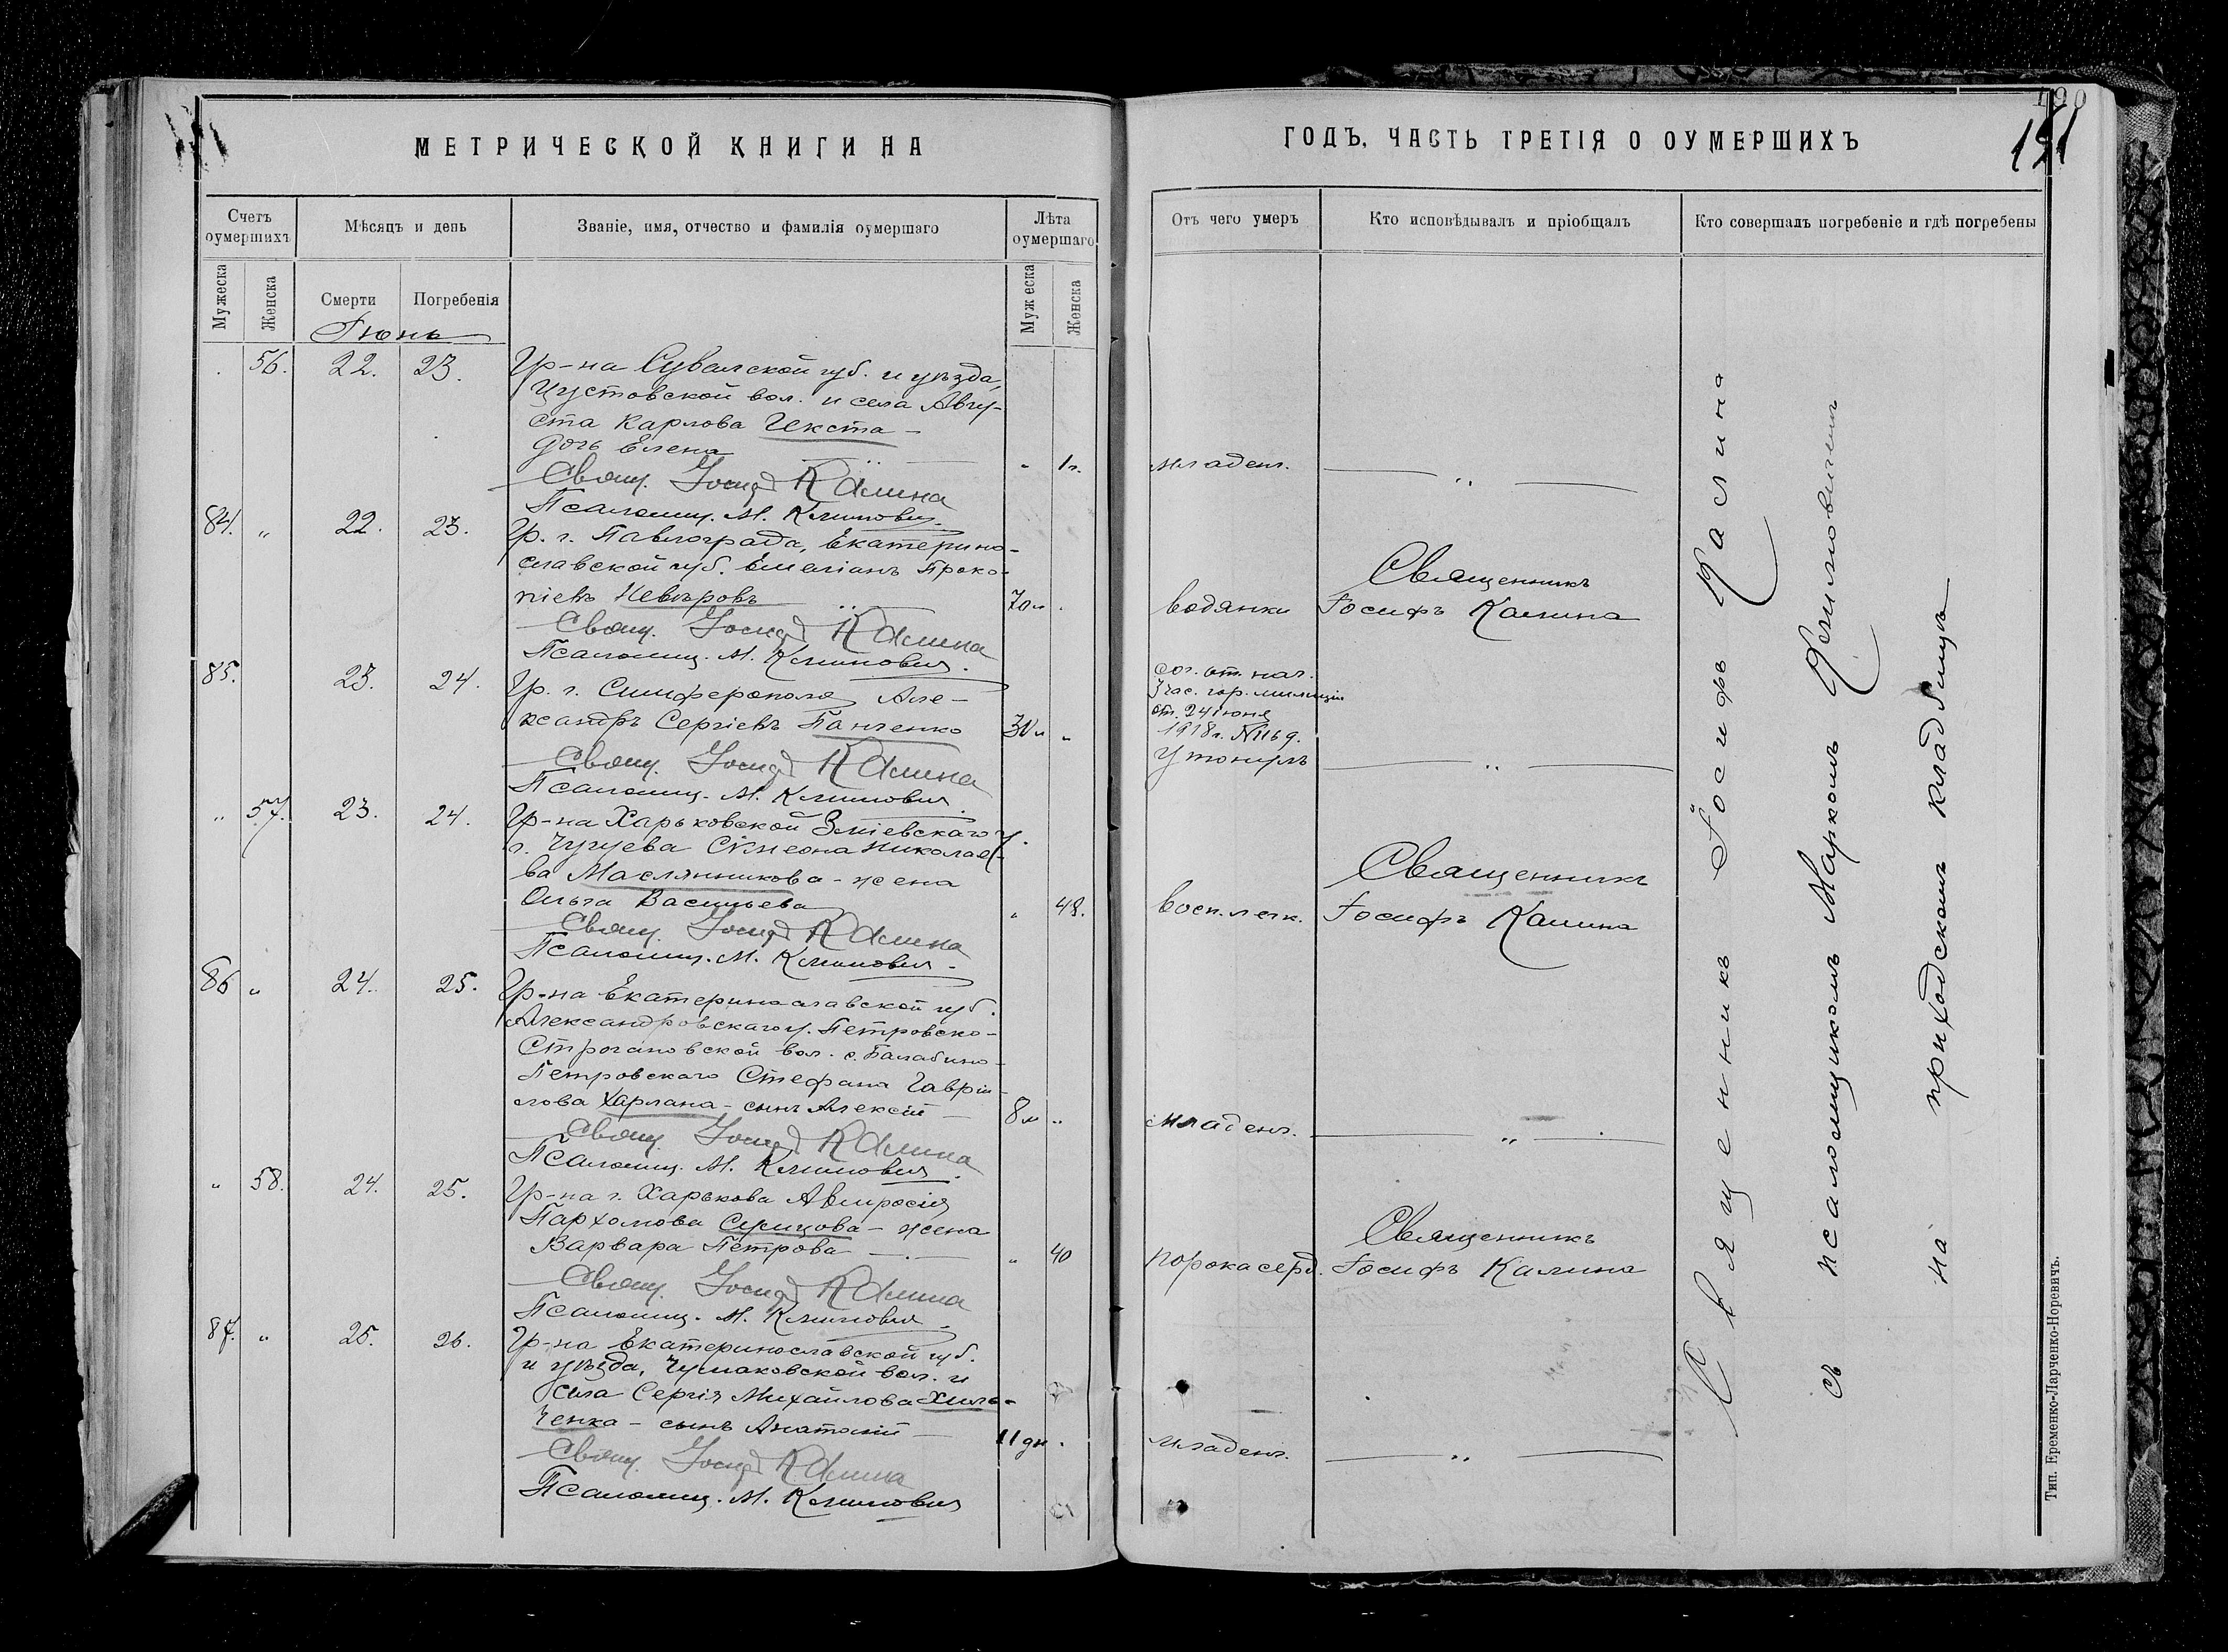 МЕТРИЧЕСКОЙ КНИГИ НА
Счетъ оумершихъ
Мѣсяцъ и день
Званіе, имя, отчество и фамилія оумершаго
Лѣта оумершаго
Мужеска
Женска
Смерти
Погребенія
Мужеска
Женска
Іюнь
56. 22. 23. Гр-на Сувалской губ. и уѣзда,
Цустовской вол. и села Авгу-
ста Карлова Гекста –
дочь Елена " 1 г.
Свящ. Іосиф Калина
Псаломщ. М. Климович.
84. " 22. 23. Гр. г. Павлограда, Екатерино-
славской губ. Емеліанъ Проко-
піевъ Невѣровъ 70 л.
Свящ. Іосиф Калина
Псаломщ. М. Климович.
85. 23. 24. Гр. г. Симферополя Але-
ксандръ Сергіевъ Панченко "
Свящ. Іосиф Калина
Псаломщ. М. Климович.
" 57. 23. 24. Гр-на Харьковской Зміевскаго у.
г. Чугуева Сѵмеона Николае-
ва Маслянникова – жена
Ольга Васильева " 48.
Свящ. Іосиф Калина
Псаломщ. М. Климович.
86 " 24. 25. Гр-на Екатеринославской губ.
Александровскаго у. Петровско-
Строгановской вол. с. Балабино-
Петровскаго Стефана Гаврі-
лова Харлана – сынъ Алексій 8 м "
Свящ. Іосиф Калина
Псаломщ. М. Климович.
" 58. 24. 25. Гр-на г. Харькова Амвросія
Пархомова – жена
Варвара Петрова " 40
Свящ. Іосиф Калина
Псаломщ. М. Климович.
87. " 25. 26. Гр-на Екатеринославской губ.
и уѣзда, Чумаковской вол. и
села Сергія Михайлова Хиль-
ченка – сынъ Анатолій 11 дн.
Свящ. Іосиф Калина
Псаломщ. М. Климович
ГОДЪ, ЧАСТЬ ТРЕТІЯ О ОУМЕРШИХЪ
190
191
Отъ чего умеръ
Кто исповѣдывалъ и пріобщалъ
Кто совершалъ погребеніе и гдѣ погребены
младен. "
водянки
Священникъ
Іосифъ Калина
сог. от. нач.
3 час. гор. милиціи
от. 24 іюня
1918 г. №1169.
Утонулъ "
восп. легк.
Священникъ
Іосифъ Калина
младен. "
порока серд.
Священникъ
Іосифъ Калина
младен. "
Священникъ Іосифъ Калина
съ псаломщикомъ Маркомъ Климовичемъ
на приходскомъ кладбищѣ
Тип. Еременко-Ларченко-Норевичъ.